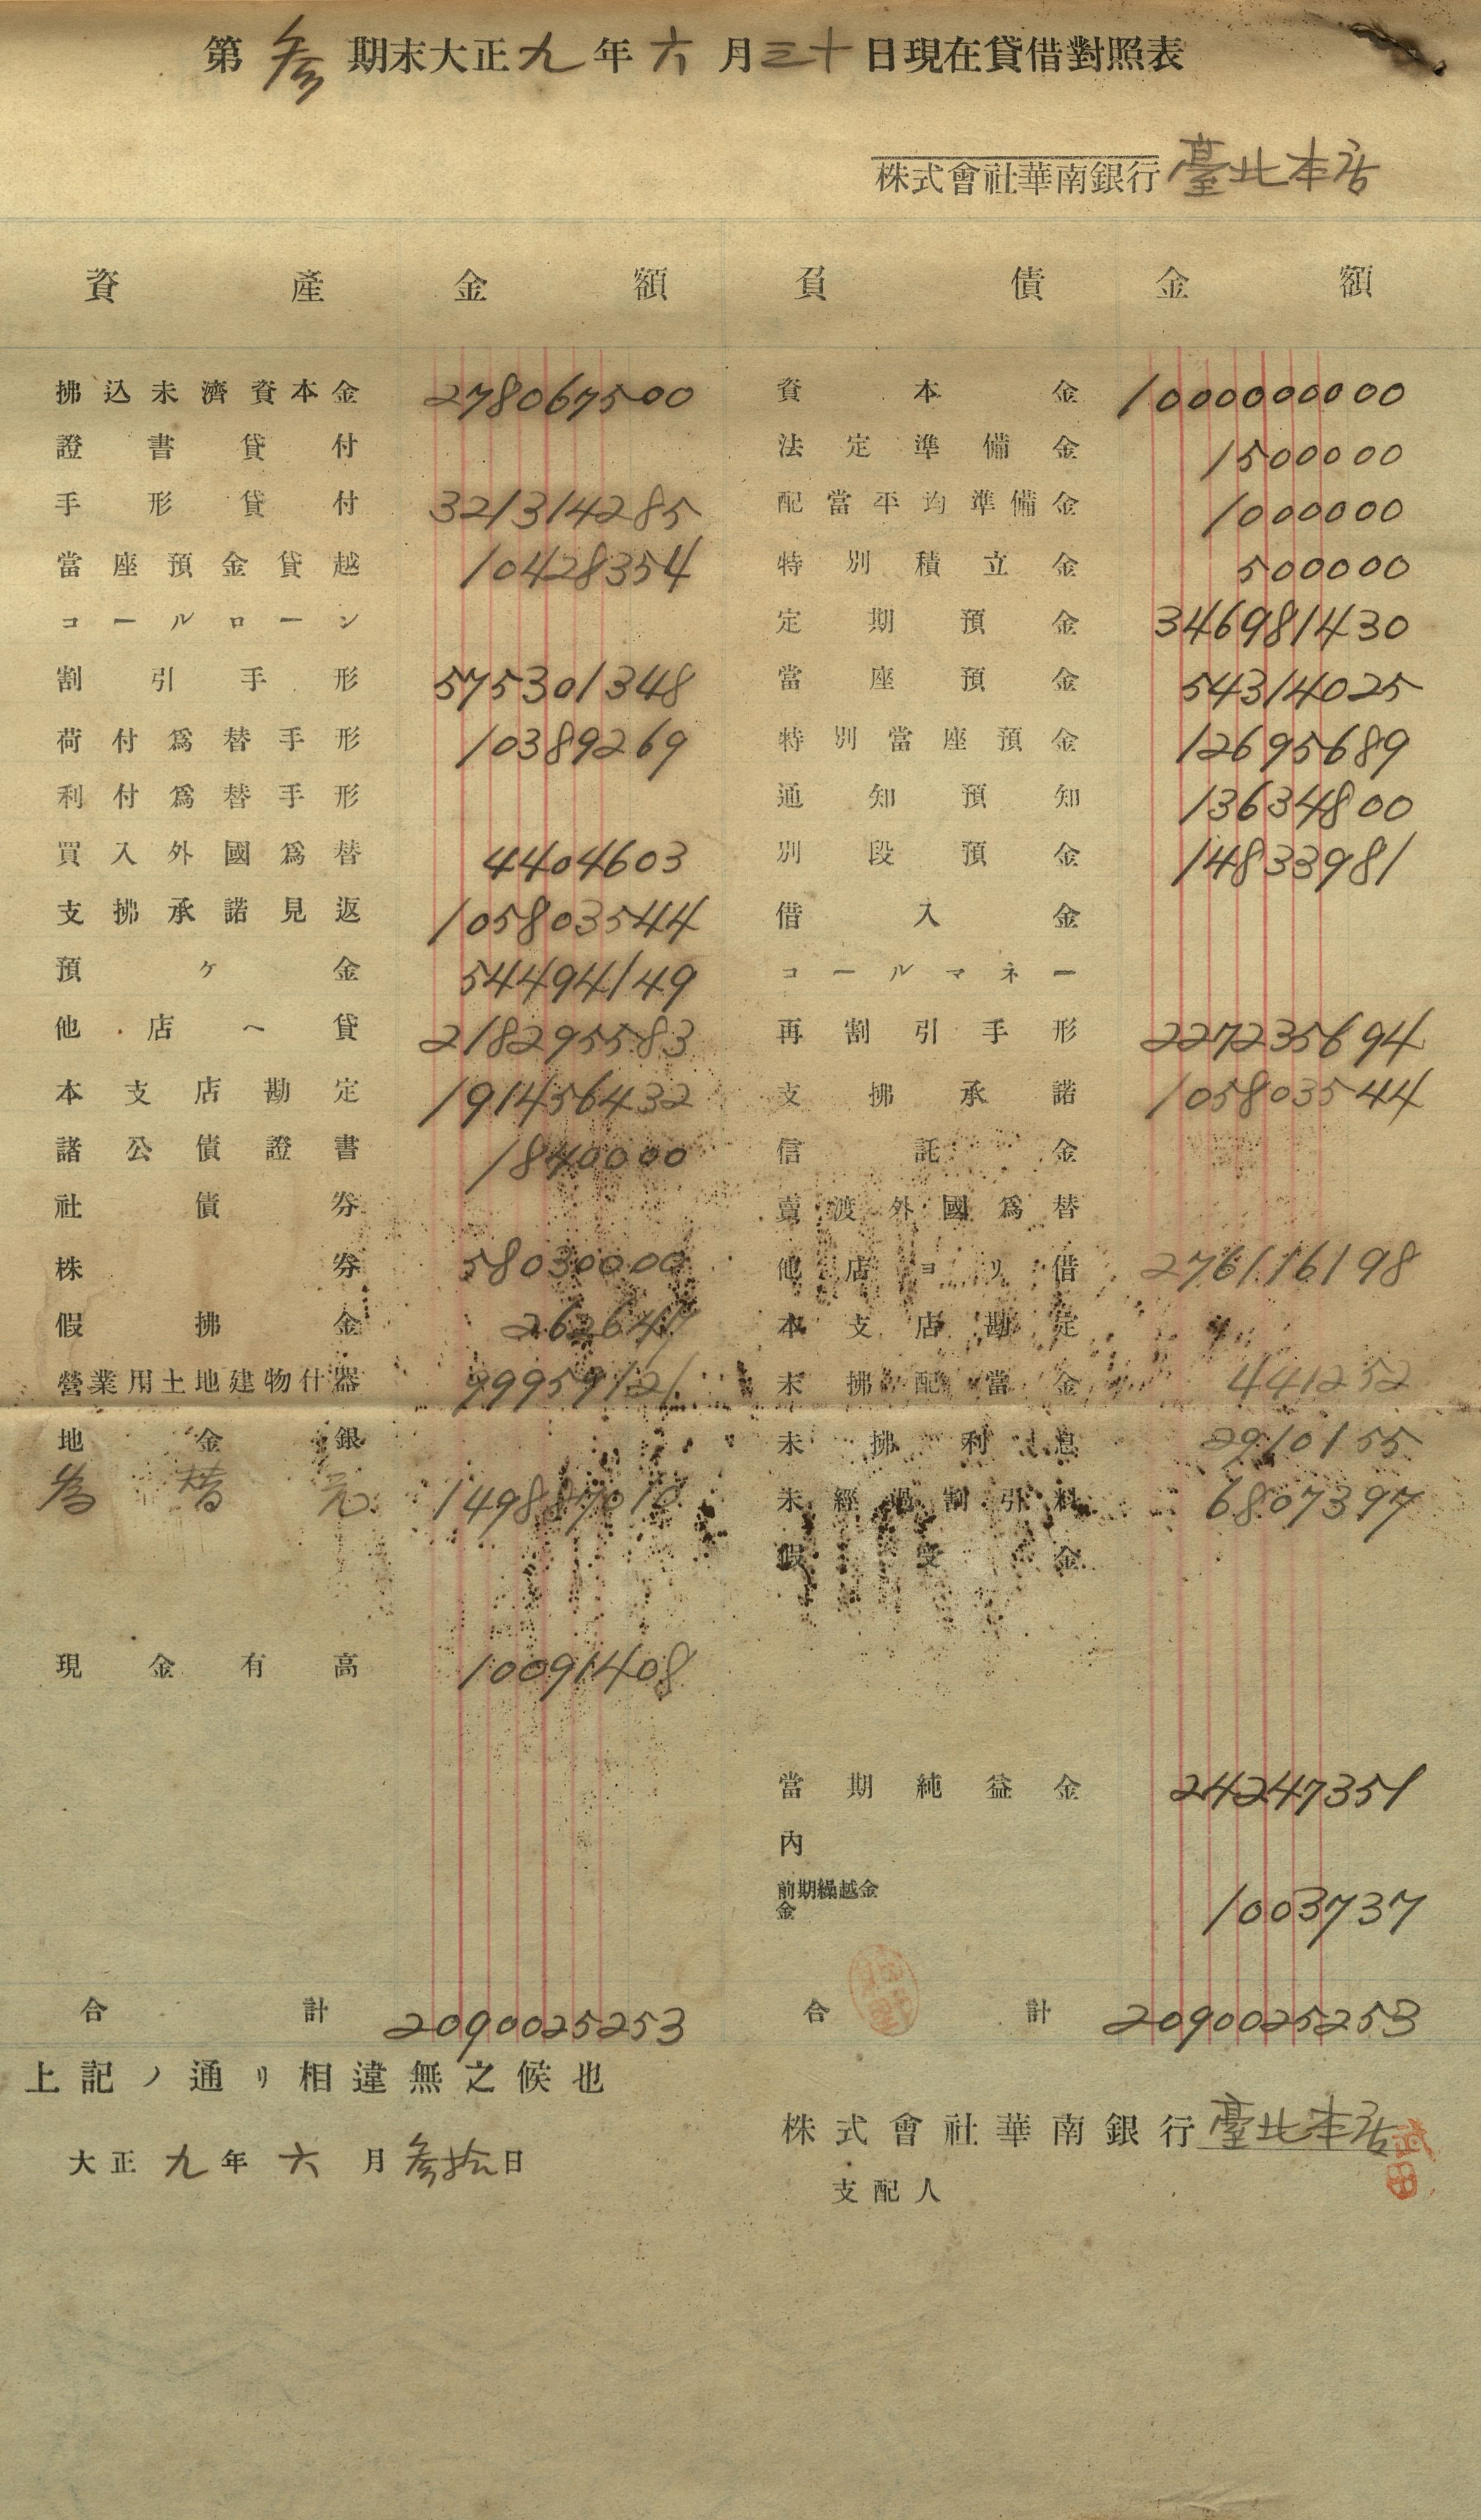 第參期末大正九年六月三十日現在貸借對照表
株式會社華南銀行臺北本店
資產 金額 負債 金額
拂込未濟資本金 278067500 資本金 1000000000
證書貸付 法定準備金 1500000
手形貸付 321314285 配當平均準備金 1000000
當座預金貸越 10428354 特別積立金 500000
コールローン 定期預金 346981430
割引手形 575301348 當座預金 54314025
荷付爲替手形 10389269 特別當座預金 12695689
利付爲替手形 通知預知 13634800
買入外國爲替 4404603 別段預金 14833981
支拂承諾見返 105803544 借入金
預ケ金 54494149 コールマネー
他店ヘ貸 218295583 再割引手形 227235694
本支店勘定 191456432 支拂承諾 105803544
諸公債證書 1840000 信託金
社債劵 賣渡外國爲替
株劵 58030000 他店ヨリ借 276116198
假拂金 262647 本支店勘定
營業用土地建物什器 99959121 未拂配當金 441252
地金銀 未拂利息 2910155
為替元 149887010 未經過割引料 6807397
假受金
現金有高 10091408
當期純益金 24247351
內
前期繰越金
金 1003737
合計 2090025253 合計 2090025253
上記ノ通リ相違無之候也
株式會社華南銀行臺北本店
大正九年六月參拾日
支配人